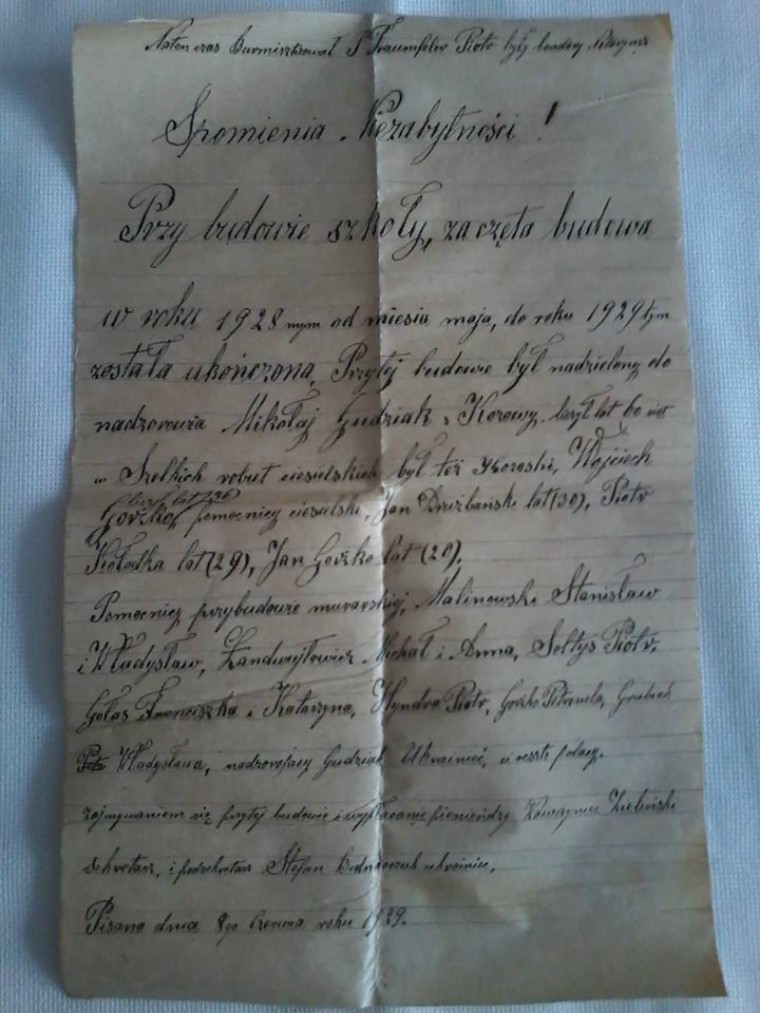 Naten czas Burmistrzował P Traumfelw Piotr były
Spomienia Niezabytności!
Przy budowie szkoły, zaczęta budowa
w roku 1928 mym od miesia maja, do roku 1929 tym
została ukończona, Przytej budowie był nadzielony do
Mikołaj Gudziak z Korowy lat 60
robut ciesielskich był też Wojciech
Gorzkoł pomocnicy ciesielski, Jan Druzbański lat (30), Piotr
Kołodka lat (29), Jan Gorzko lat (20),
Pomocnicy przybudowie murarskiej, Malinowski Stanisław
i Władysław, Michał i Anna, Sołtys Piotr,
Golas Franciszka i Katarzyna, Hyndra Piotr, Gorzko Petronela,
Władysława, nadzorujący Gudziak Ukrainieć, a reszta polacy.
zajmywaniem się przytej budowie i wypłacanie pieniendzy Zieliński
Sekretarz, i podsekretarz Stefan ukrainiec,
Pisano dnia 8go Czerwca roku 1929.